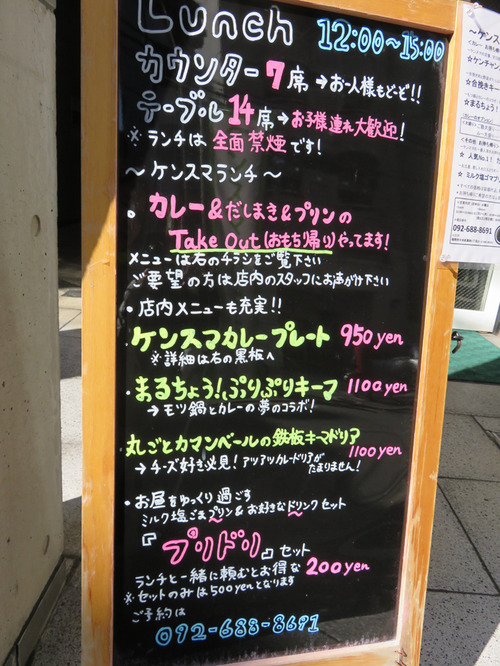 Lunch 12:00～15:00
カウンター7席→お一人様もどーぞ!!
テーブル14席→お子様連れ大歓迎!
※ランチは全面禁煙です!
～ケンスマランチ～
。カレー&だしまき&プリンの
Take Out(おもち帰り)やってます!
メニューは右のチラシをご覧下さい
ご要望の方は店内のスタッフにお声がけ下さい
・店内メニューも充実!!
ケンスマカレープレート 950yen
※詳細は右の黒板へ
・まるちょう!ぷりぷりキーマ 1100yen
→モツ鍋とカレーの夢のコラボ!
丸ごとカマンベールの鉄板キーマドリア 1100yen
→チーズ好き必見!アツアツカレードリアがたまりません!
・お昼をゆっくり過ごす
ミルク塩ごまプリン&お好きなドリンクセット
『プリドリ』セット
ランチと一緒に頼むとお得な200yen
※セットのみは500yenとなります
ご予約は
092-688-8691
～ケンス
☆ケンチャン
☆合挽きキー
☆まるちょう!
人気No.1
☆ミルク塩ゴマプリ
092-688-8691